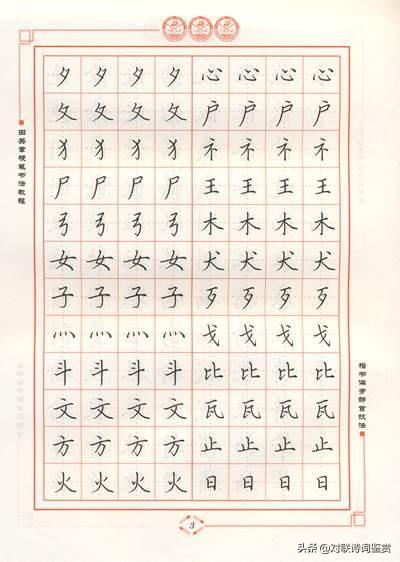 田英章硬笔书法教程
夕 夕 夕 夕 心 心 心 心
夂 夂 夂 夂 户 户 户 户
犭 犭 犭 犭 礻 礻 礻 礻
尸 尸 尸 尸 王 王 王 王
弓 弓 弓 弓 木 木 木 木
女 女 女 女 犬 犬 犬 犬
子 子 子 子 歹 歹 歹 歹
灬 灬 灬 灬 戈 戈 戈 戈
斗 斗 斗 斗 比 比 比 比
文 文 文 文 瓦 瓦 瓦 瓦
方 方 方 方 止 止 止 止
火 火 火 火 日 日 日 日
楷书偏旁部首技法
3
头条 @对联诗词鉴赏